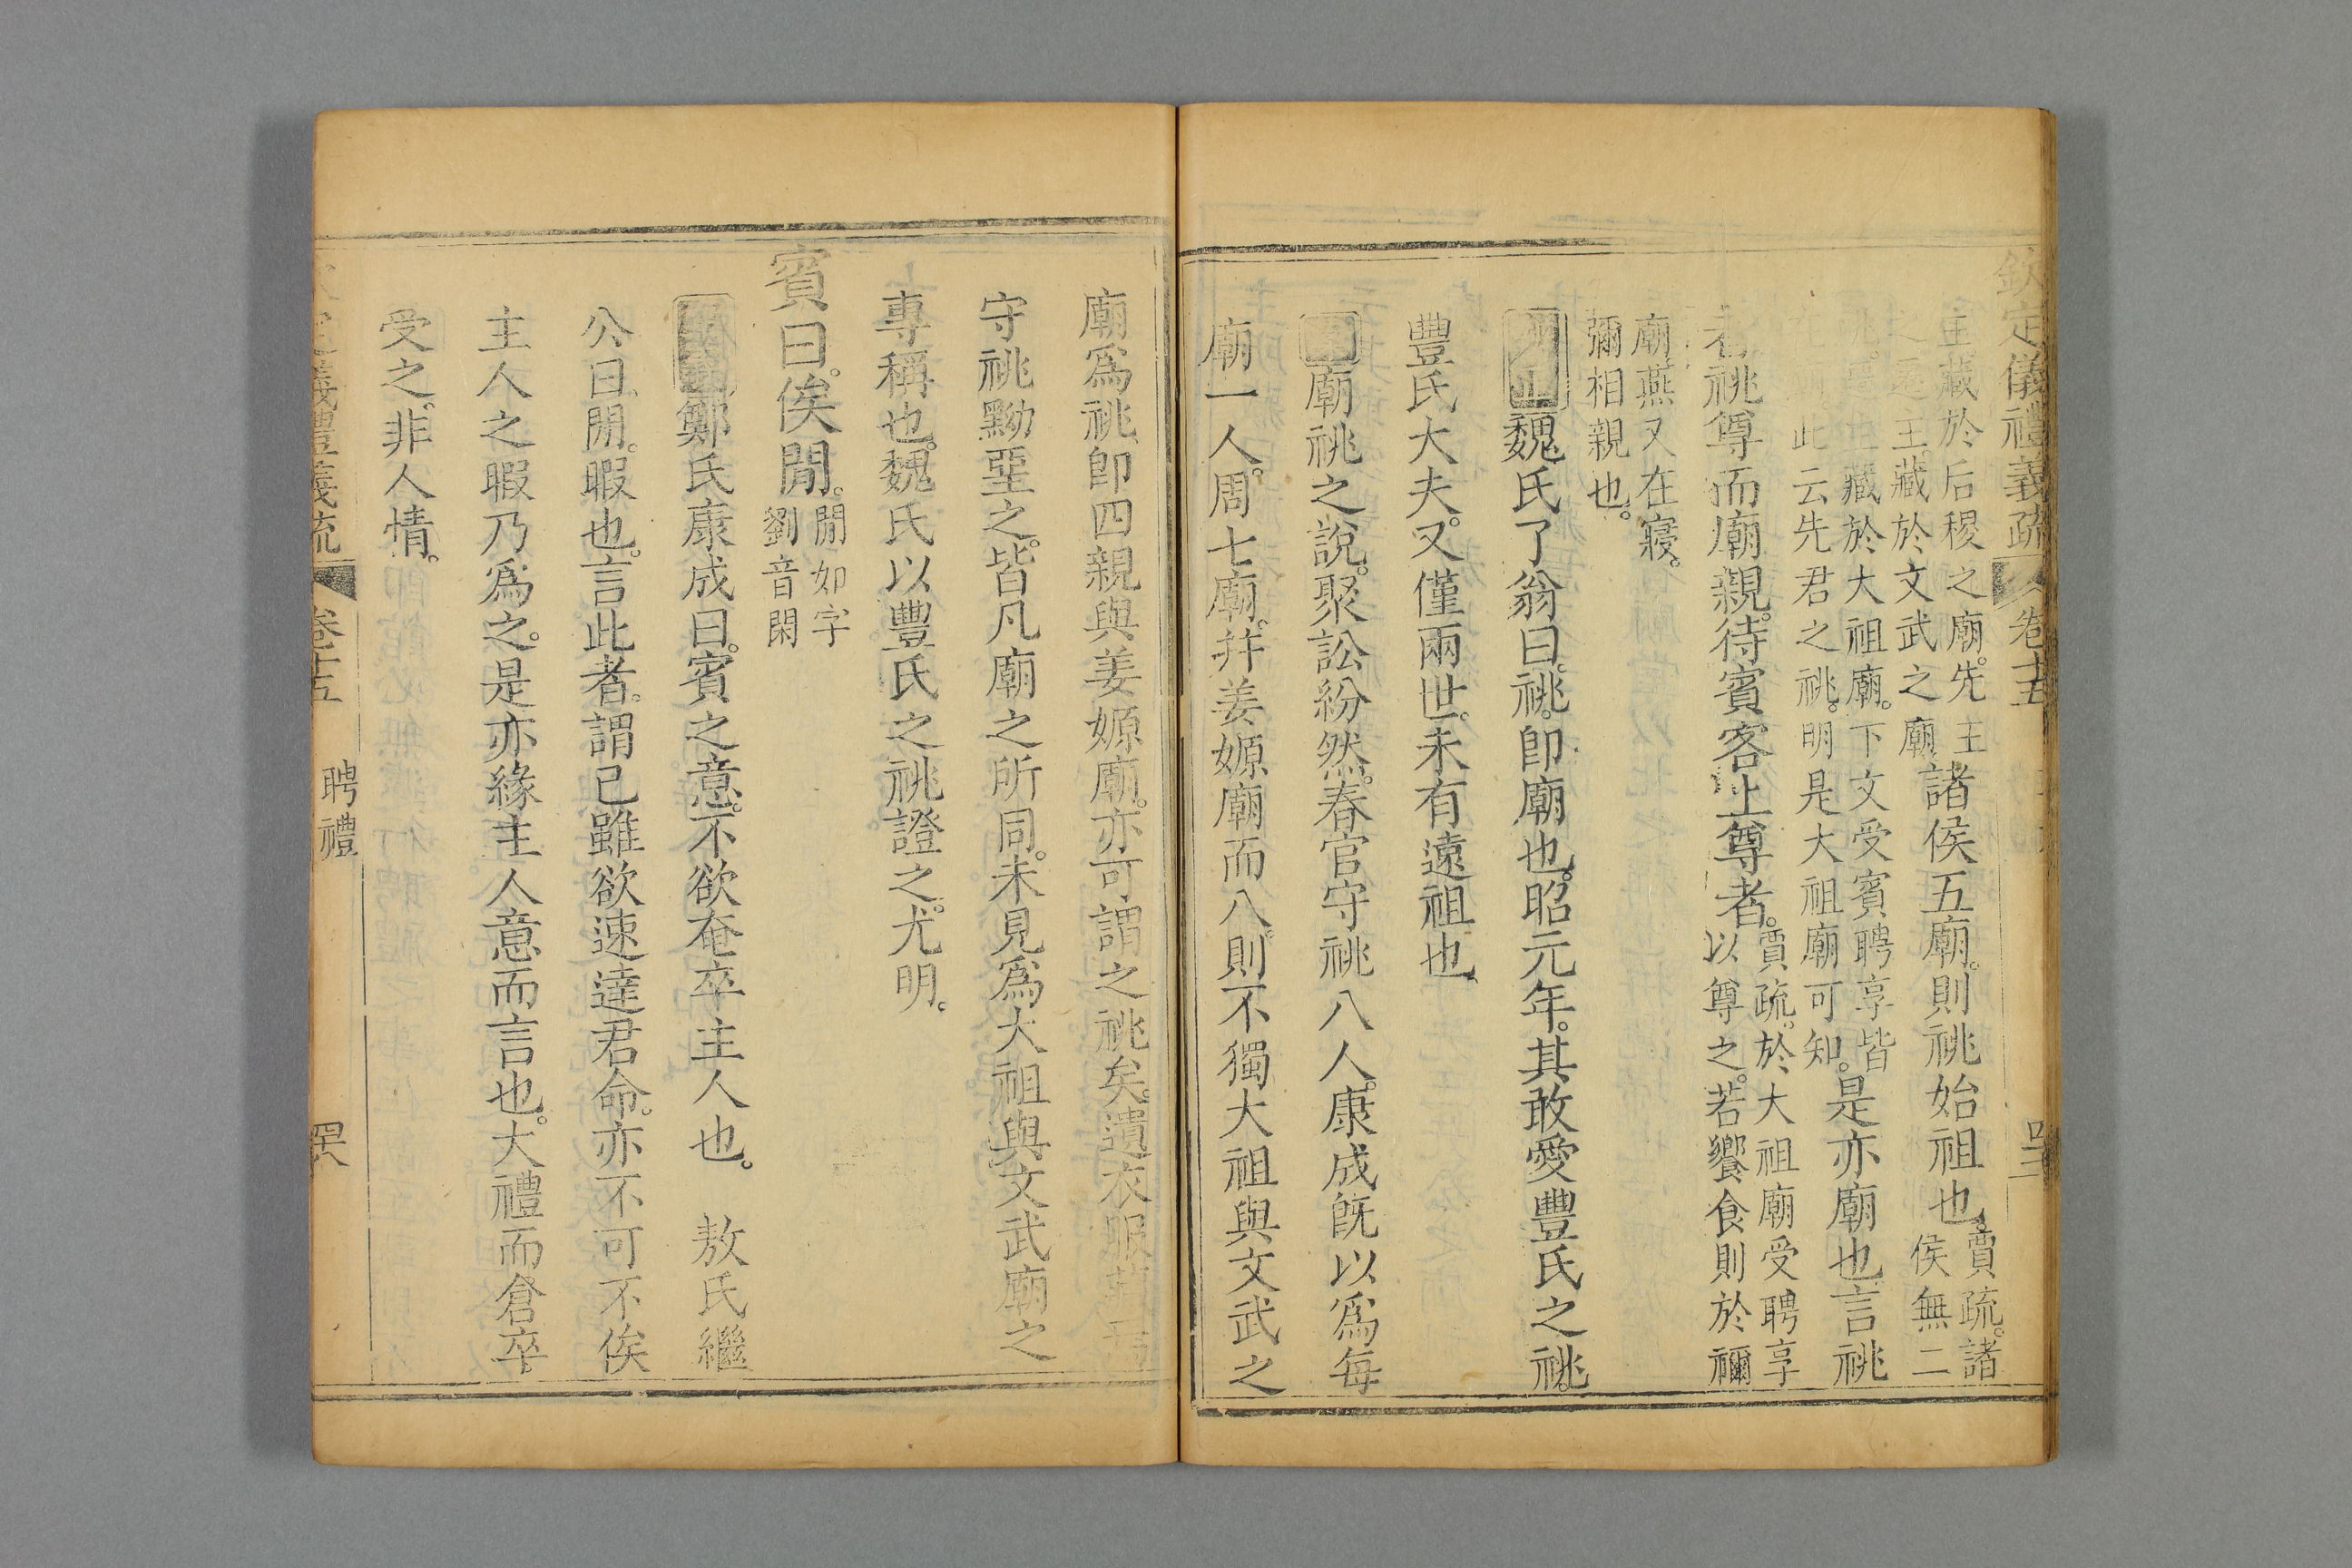 欽定儀禮義疏 卷十五
主藏於后稷之廟。先
王藏於文武之廟
諸侯五廟。則祧始祖也。
賈疏。諸
侯無二
藏於大祖廟。下文受賓聘享皆
此云先君之祧。明是大祖廟可知。
是亦廟也。言祧
者祧尊而廟親。待賓客上尊者。
賈疏。於大祖廟受聘享
以尊之。若饗食則於禰
廟燕又在寢。
彌相親也。
魏氏了翁曰。祧。卽廟也。昭元年。其敢愛豐氏之祧。
豐氏大夫。又僅兩世。未有遠祖也。
廟祧之說。聚訟紛然。春官守祧八人。康成旣以爲每
廟一人。周七廟。幷姜嫄廟而八。則不獨大祖與文武之
廟爲祧。卽四親與姜嫄廟。亦可謂之祧矣。遺衣服藏焉
守祧黝堊之。皆凡廟之所同。未見爲大祖與文武廟之
專稱也。魏氏以豐氏之祧證之。尤明。
賓曰。俟閒。
閒如字
劉音閑
鄭氏康成曰。賓之意。不欲奄卒主人也。 敖氏繼
公曰。閒。暇也。言此者。謂已雖欲速達君命。亦不可不俟
主人之暇乃爲之。是亦緣主人意而言也。大禮而倉卒
受之。非人情。
義禮義疏 卷十五 聘禮